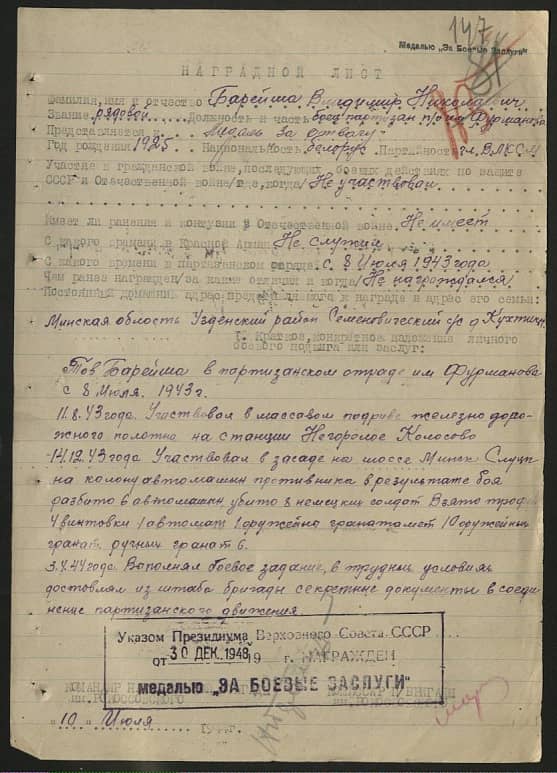 147
Медалью „За Боевые Заслуги“
НАГРАДНОЙ ЛИСТ
Фамилия, имя и отчество Барейша Владимир Николаевич
Звание рядовой Должность и часть боец партизан п/о им Фурманова
Представляется к медаль за отвагу
Год рождения 1925. Национальность белорус Партийность чл. ВЛКСМ
Участие в гражданской войне, последующих боевых действиях по защите
СССР и Отечественной войне/где, когда/ Не участвовал
Имеет ли ранения и контузии в Отечественной войне. Не имеет
С какого времени в Красной Армии Не служил
С какого времени в партизанском отряде. с 8 Июля 1943 года
Чем ранее награжден/за какие отличия и когда/ Не награждался
Постоянный домашний адрес представляемого к награде и адрес его семьи:
Минская область Узденский район Семеновический с/с д Кухтичи
I. Краткое, конкретное изложение личного
боевого подвига или заслуг:
Тов Барейша в партизанском отряде им Фурманова
с 8 Июля. 1943 г.
11.8.43 года. Участвовал в массовом подриве железно доро-
жного полотна на станции Негорелое Колосово
14.12.43 года Участвовал в засаде на шоссе Минск Слуцк
на колону автомашин противника в результате боя
разбито 6 автомашин, убито 8 немецких солдат Взято трофеи
4 винтовки 1 автомат 1 оружейна гранатамет 10 оружейных
гранат. ручных гранат 6.
3.4.44 года. Вополнял боевое задание, в трудных условиях
достовлял из штаба бригады секретние документы в соеди
нение партизанского движения
Указом Президиума Верховного Совета СССР
от 30 ДЕК. 1948 19 г. НАГРАЖДЕН
медалью „ЗА БОЕВЫЕ ЗАСЛУГИ“
"10" Июля